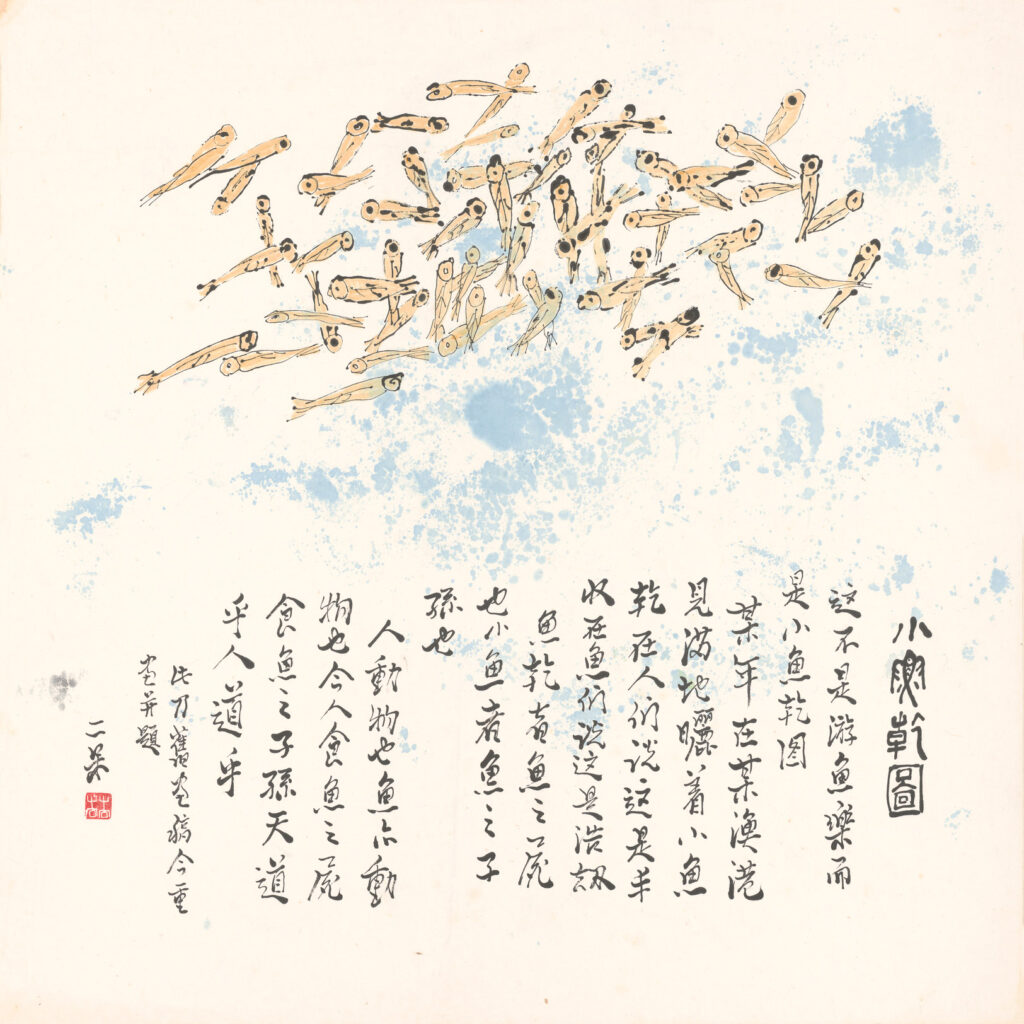 小魚乾圖
这不是游魚樂而
是小魚乾图
某年在某漁港
見满地曬着小魚
乾在人们说这是丰
收在魚们说这是浩劫
魚乾者魚之屍
也小魚者魚之子
孫也
人動物也魚亦動
物也今人食魚之屍
食魚之子孫天道
乎人道乎
此乃舊畫稿今重
畫并题
二